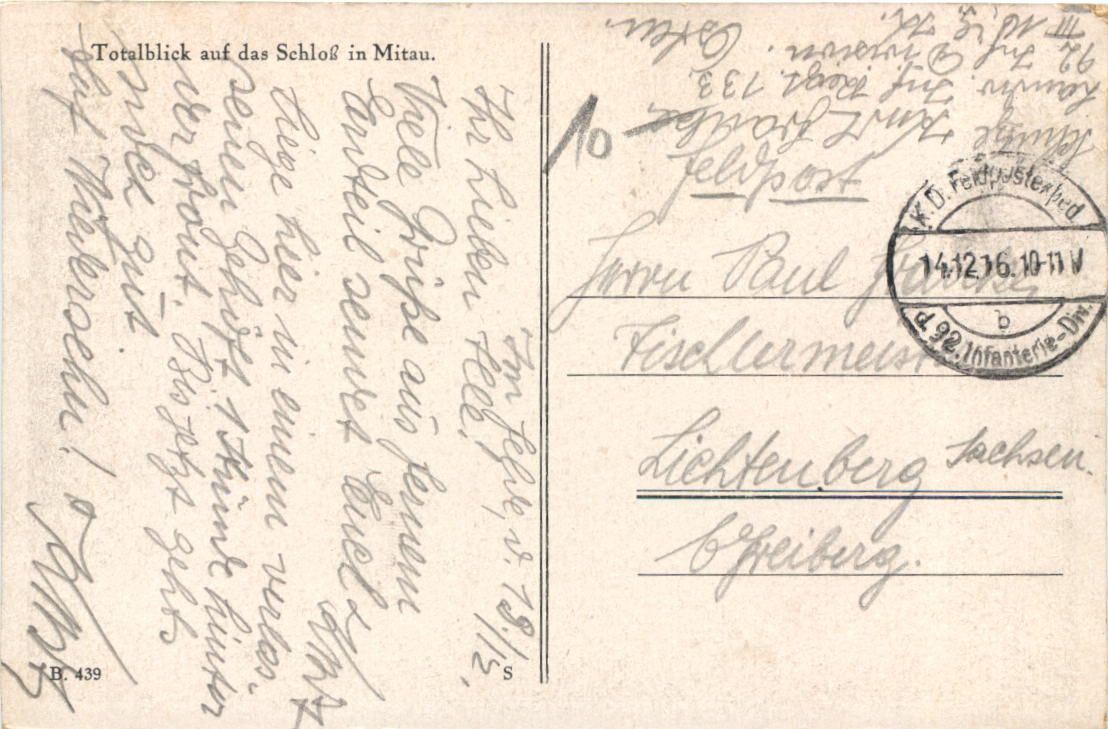 Totalblick auf das Schloß in Mitau.
Im Felde, d. 13./12.
Ihr Lieben Alle!
Viele Grüße aus fernem
Landteil sendet Euch
Kurt
Liege hier in einem verlas-
senen Gehöft 1 Stunde hinter
der Front. Bis jetzt gehts
mir gut
Auf Wiedersehn!
Kurt
B. 439
S
Schütze Kurt
Landw. Inf Regt. 133.
92 Inf Division.
Osten.
10
Feldpost
K. D. Feldpostexped.
14.12.16.10-11 V
b
d. 92. Infanterie-Div.
Herrn Paul
Tischlermeister
Lichtenberg Sachsen.
b/Freiberg.